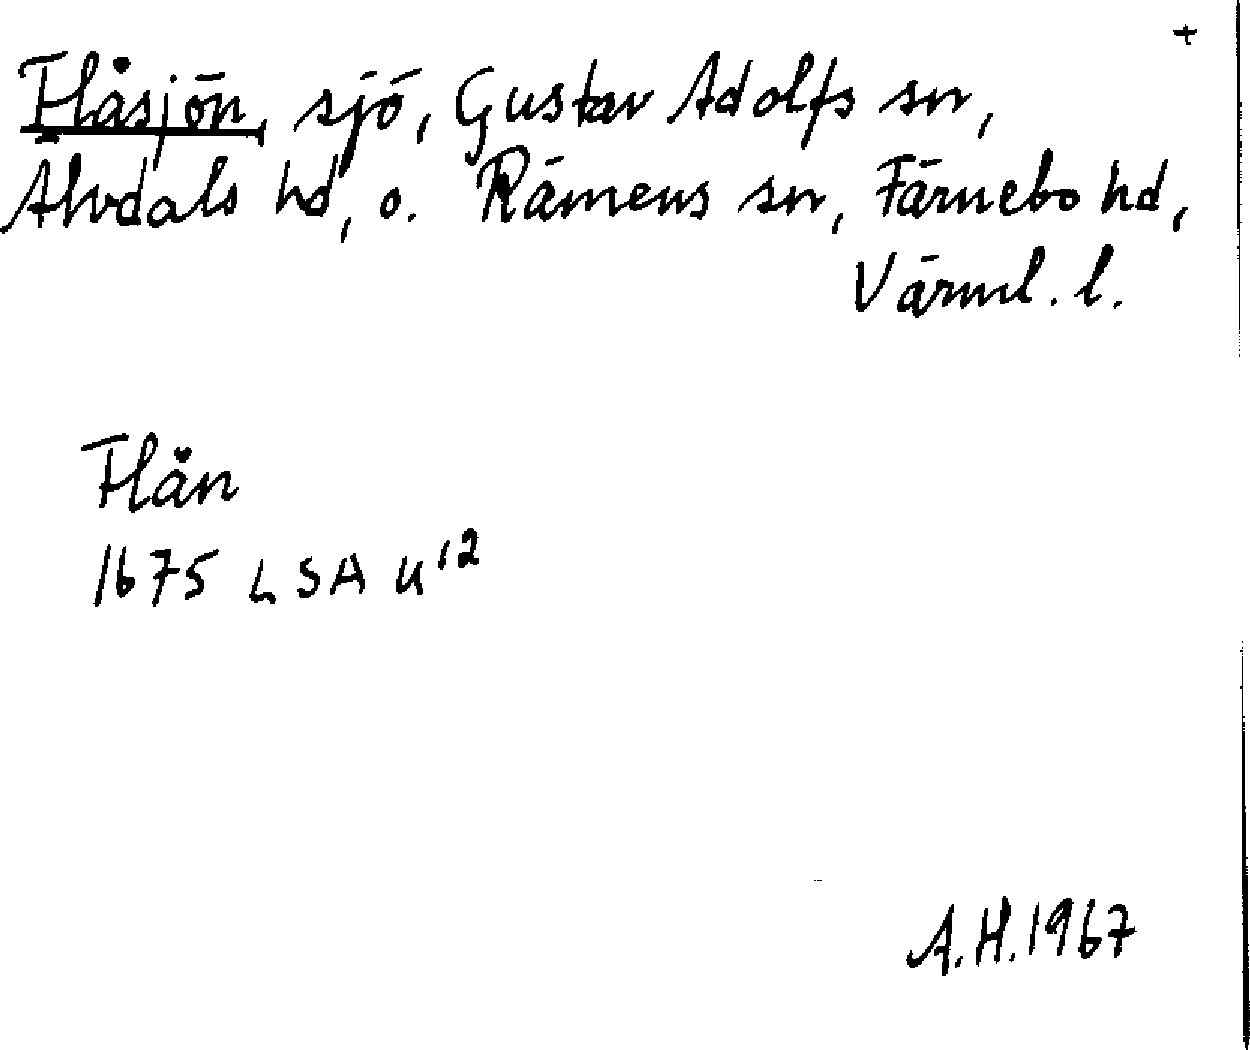 +
Flåsjön, sjö, Gustav Adolfs sn,
Älvdals hd, o. Rämens sn, Färnebo hd,
Värml. l.
Flån
1675 LSA U12
A.H. 1967